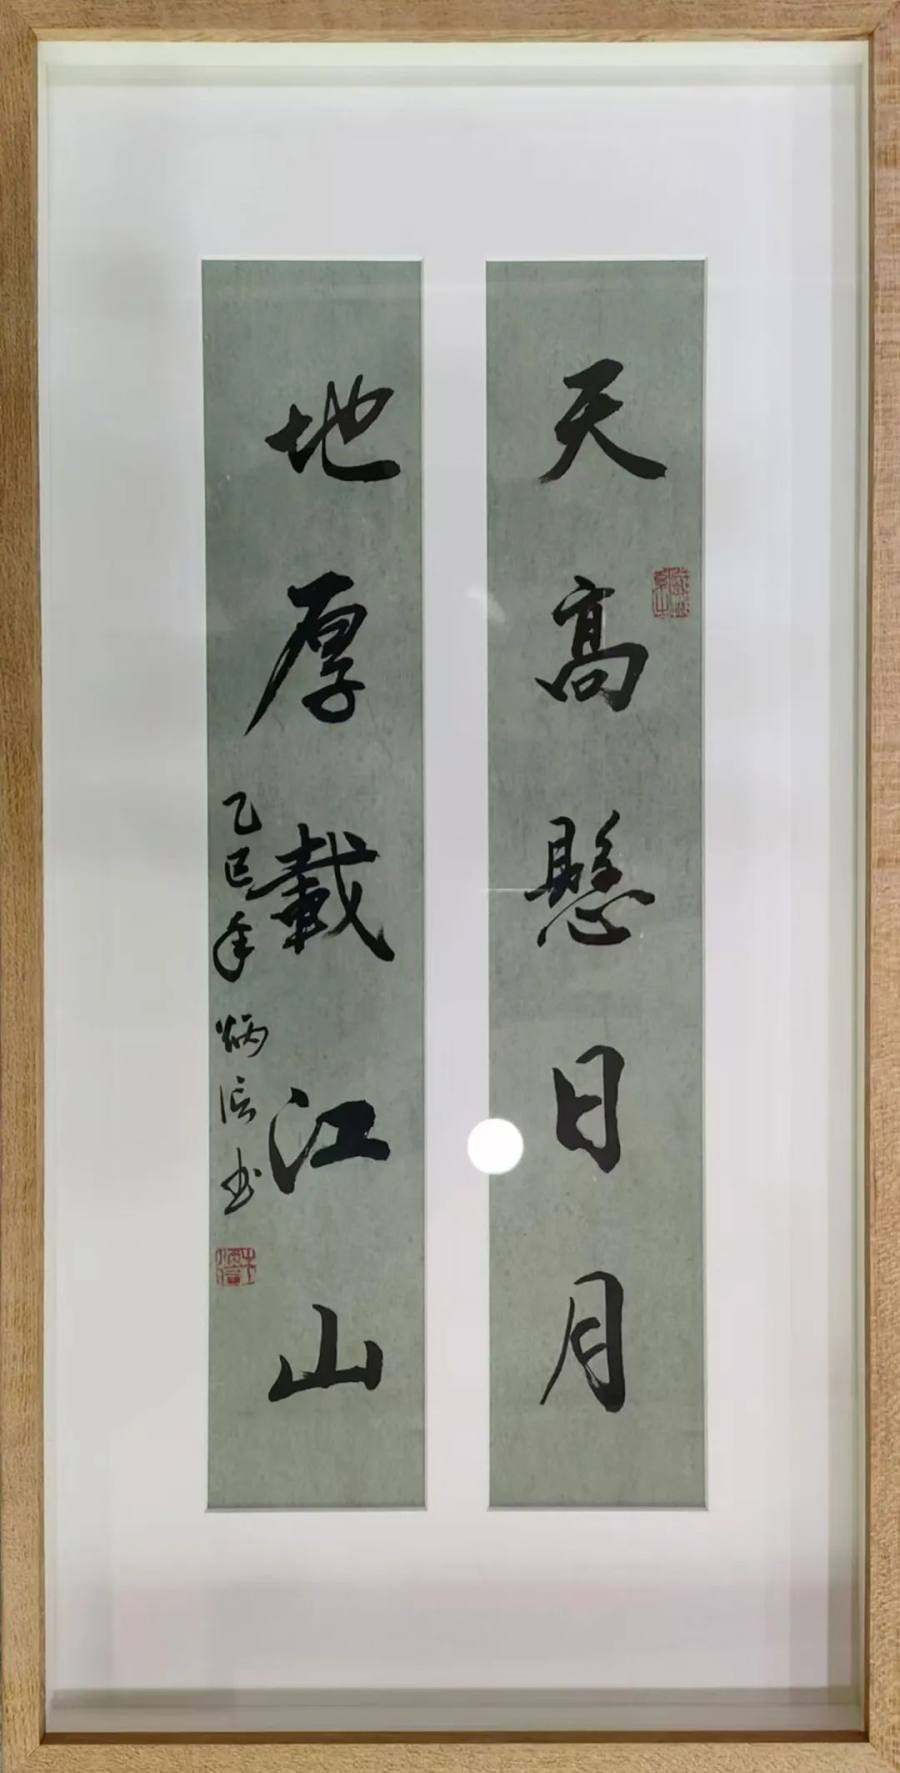 天高懸日月
地厚載江山
乙巳年 炳信书